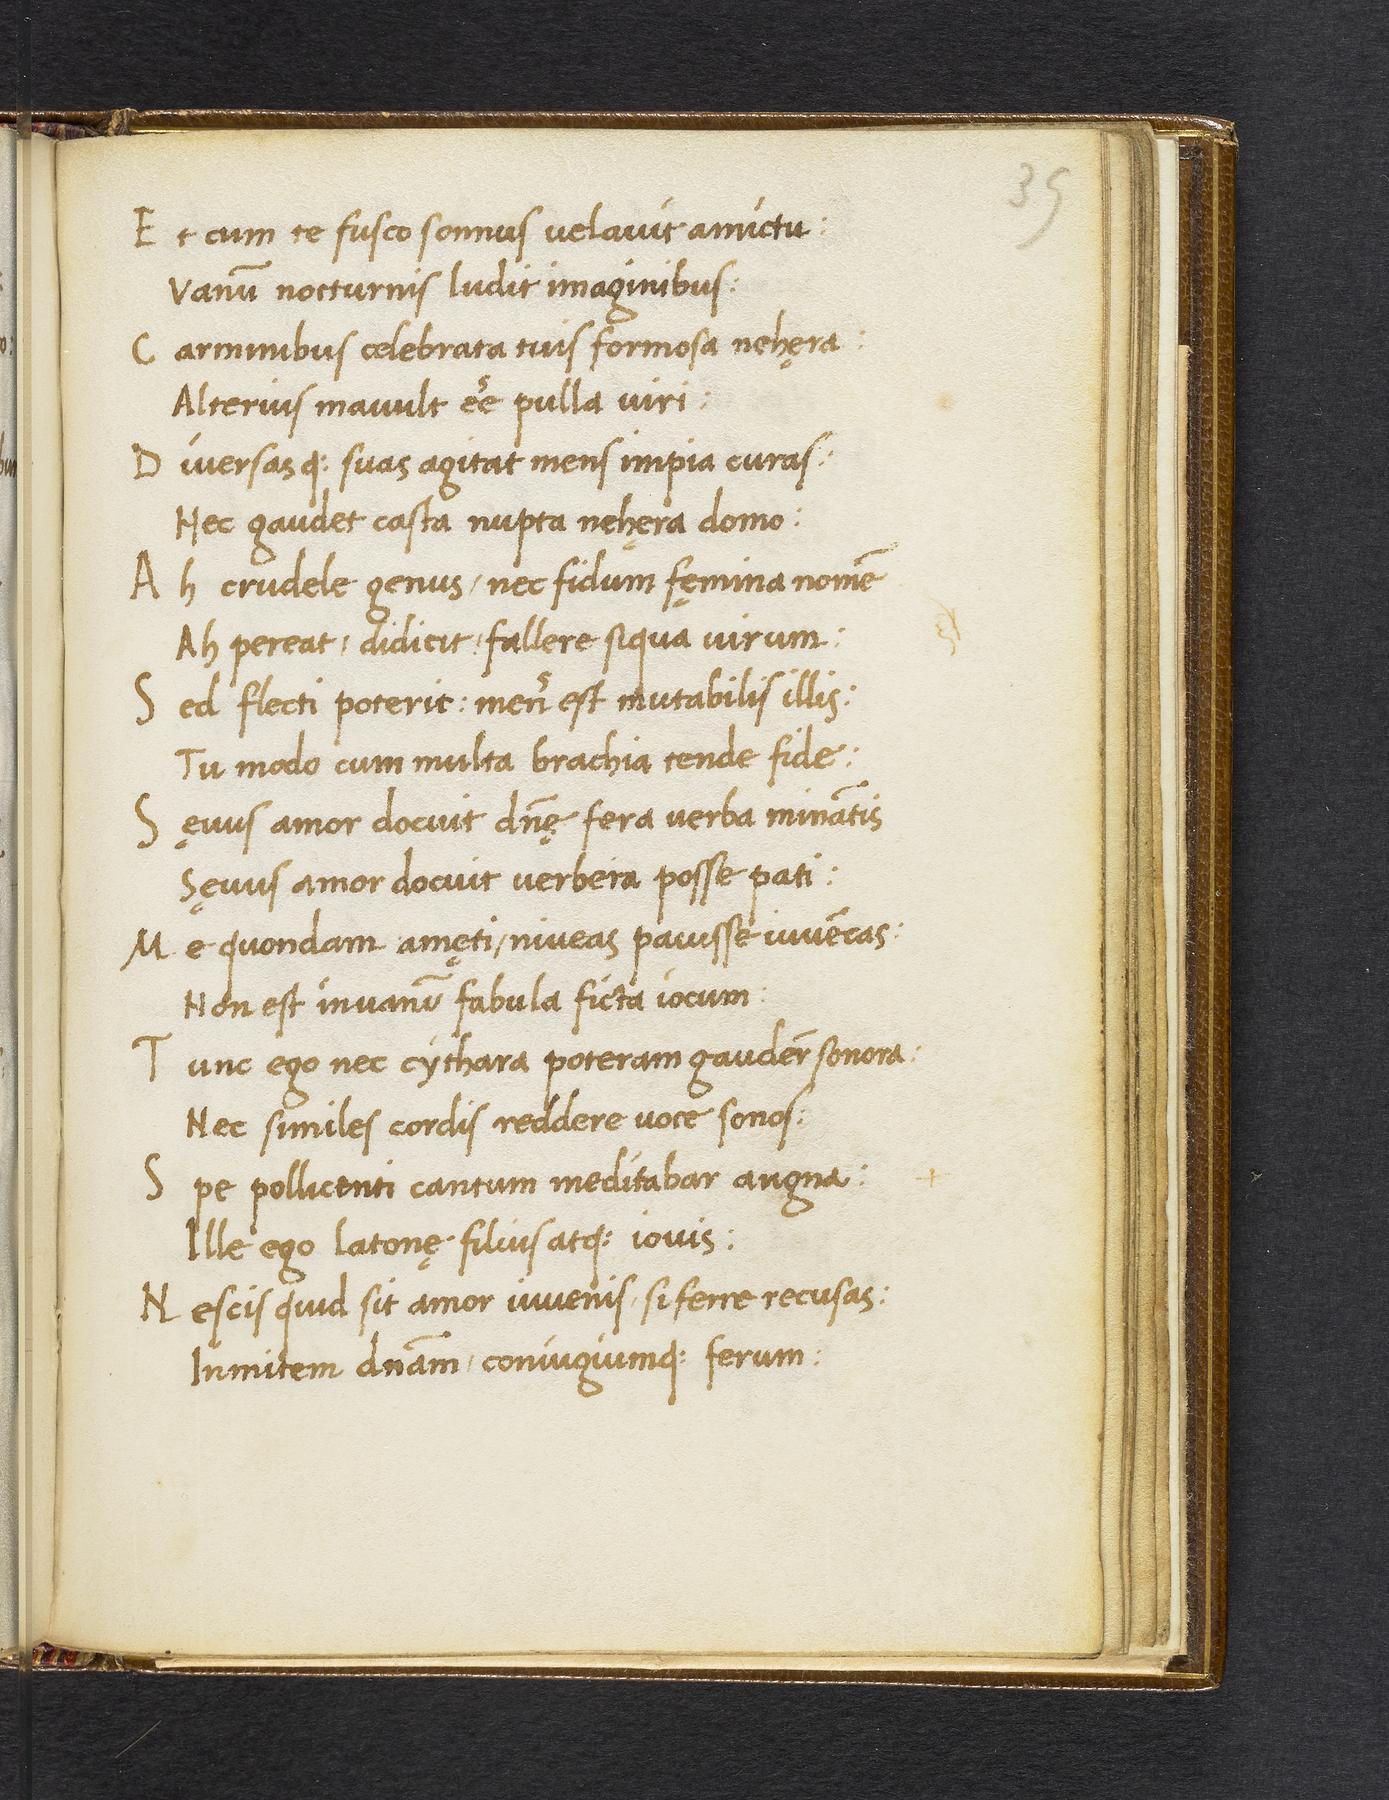 35
Et cum te fusco somnus velavit amictu:
Vanū nocturnis ludit imaginibus:
Carminibus celebrata tuis formosa nehęra:
Alterius mavult ēe pulla viri:
Diversasq: suas agitat mens impia curas:
Nec gaudet casta nupta nehęra domo:
Ah crudele genus, nec fidum fęmina nomē
Ah pereat, didicit, fallere siqua virum:
Sed flecti poterit: mens est mutabilis illis:
Tu modo cum multa brachia tende fide:
Sęvus amor docuit dn̄ę fera verba minātis
Sęvus amor docuit verbera posse pati:
Me quondam amęti, niveas pavisse iuvēcas:
Non est invanū fabula ficta iocum:
Tunc ego nec cythara poteram gauder̄ sonora:
Nec similes cordis reddere voce sonos:
Spe pollicenti cantum meditabar
Ille ego latonę filius atq: iovis:
Nescis quid sit amor iuvenis, si ferre recusas:
Inmitem dnām, coniugiumq: ferum: